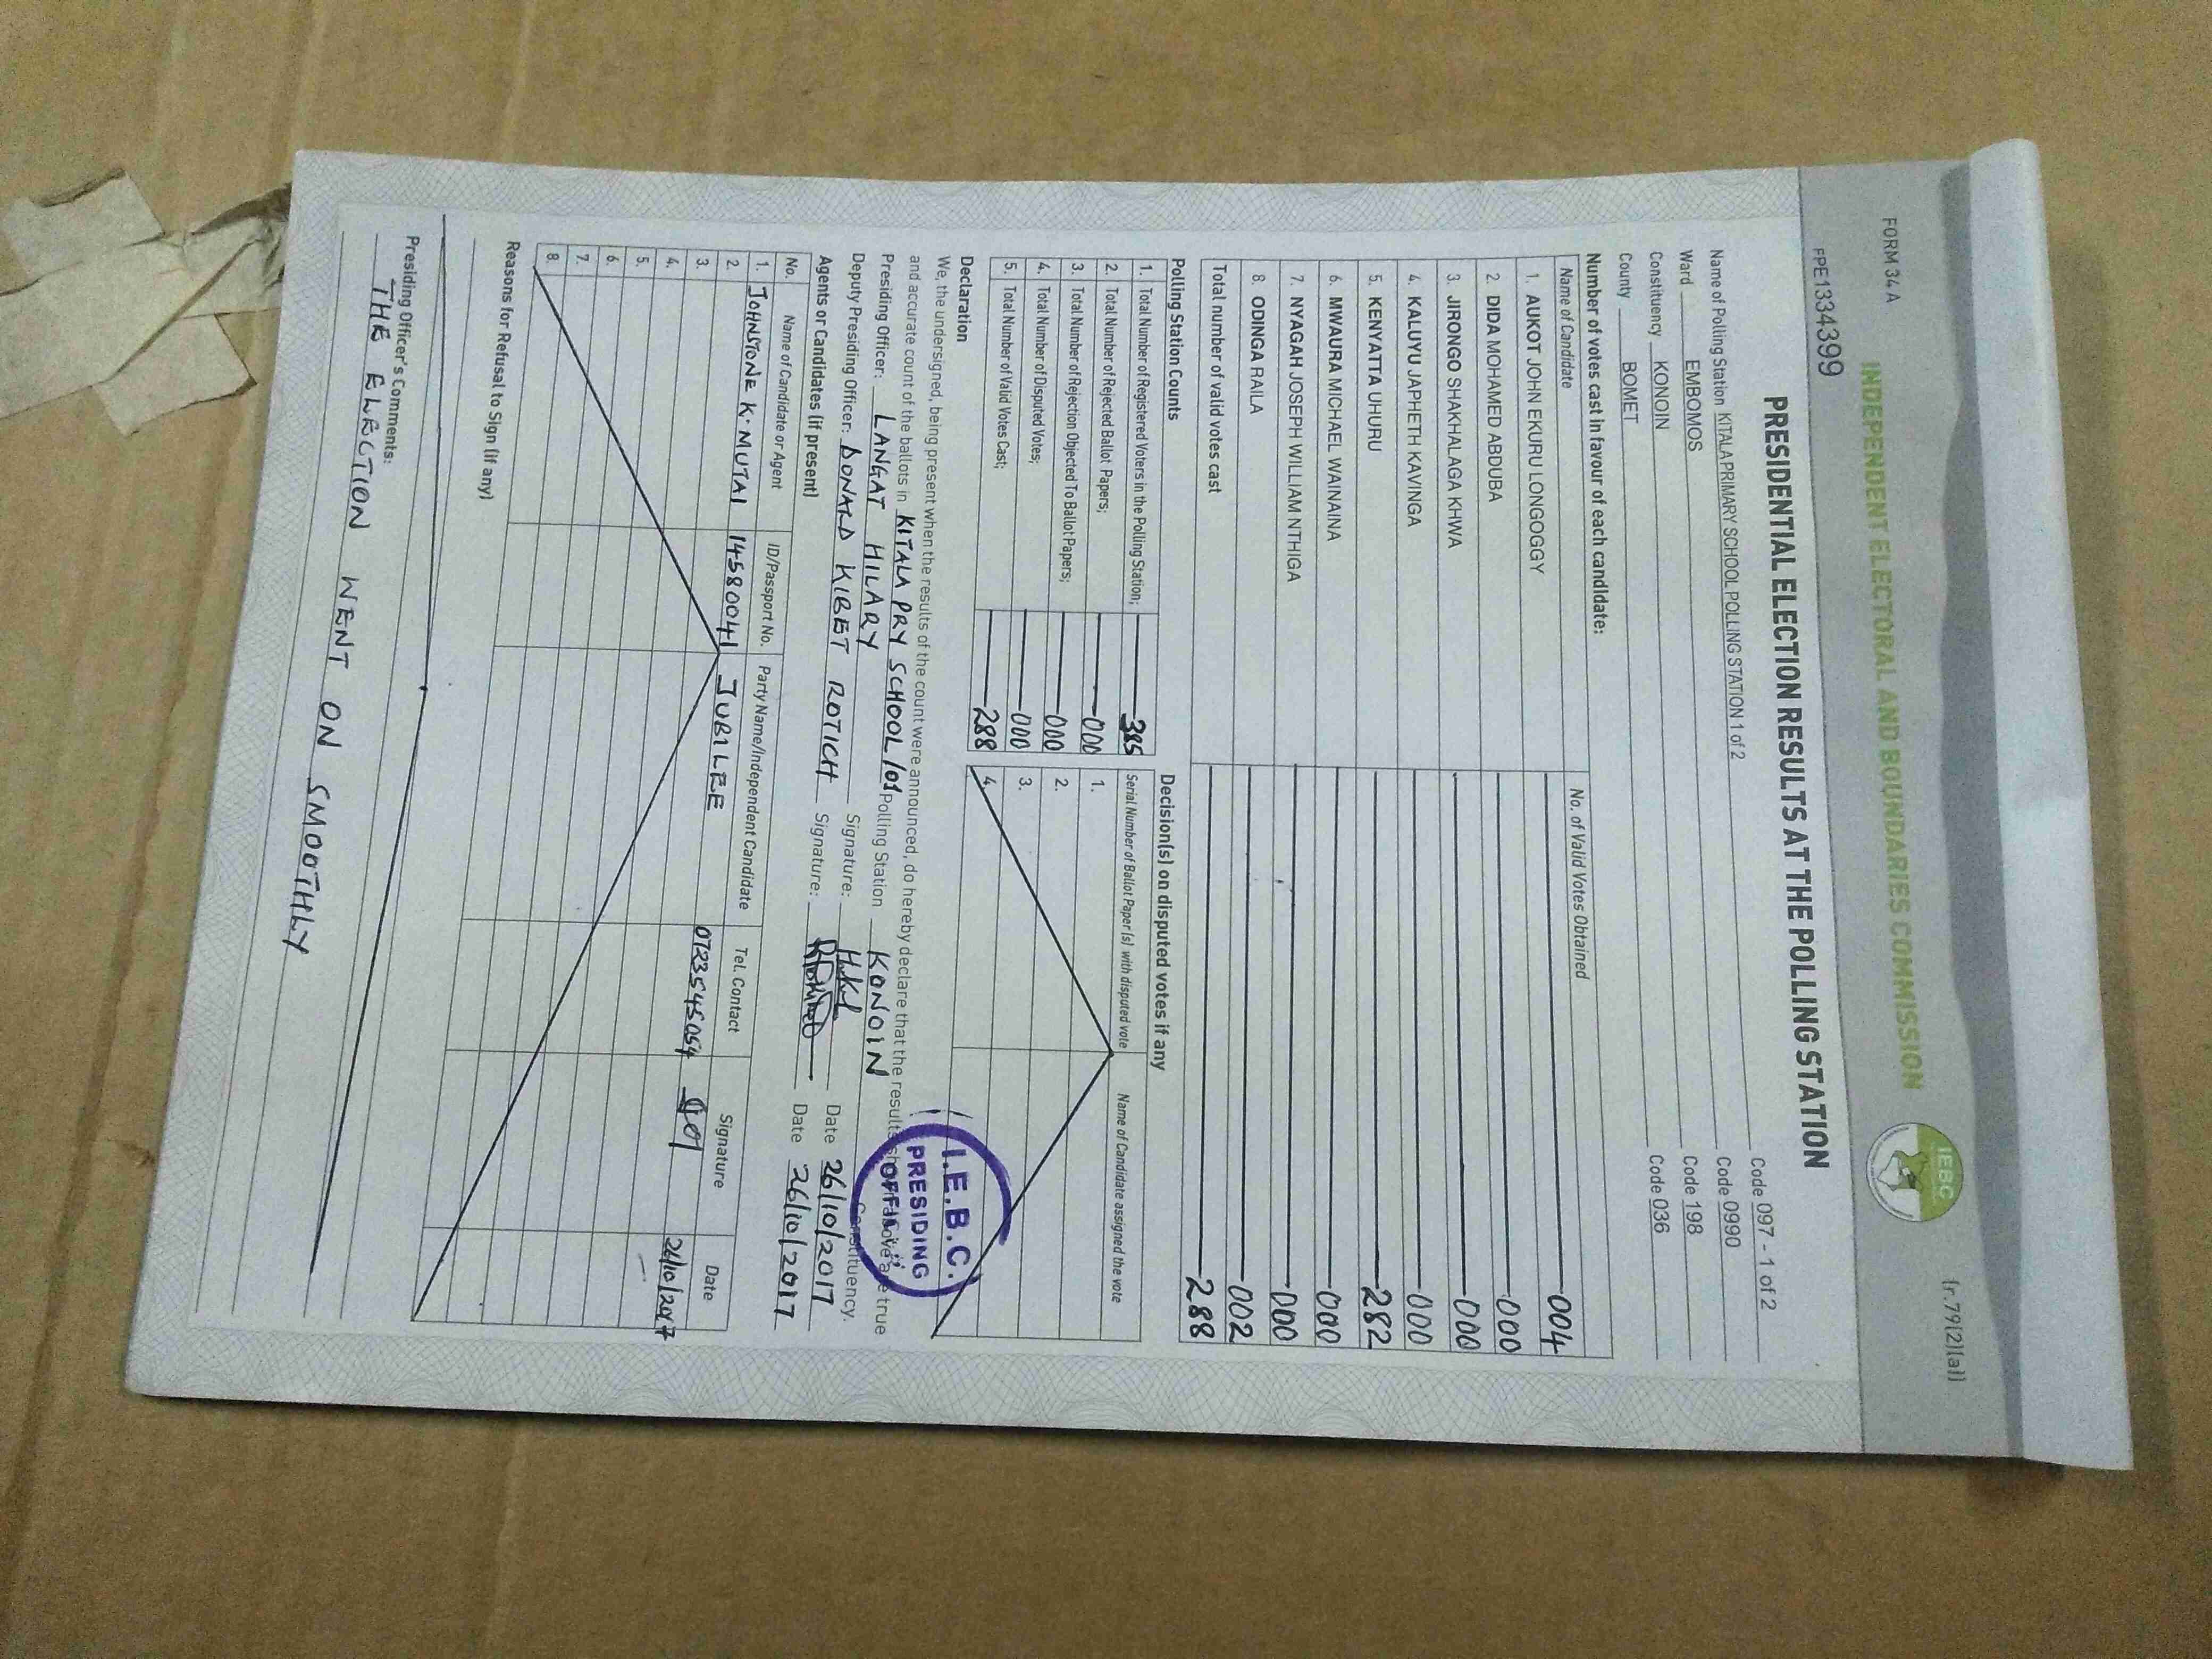 FORM 34 A
(r.79(2)(a))
INDEPENDENT ELECTORAL AND BOUNDARIES COMMISSION
IEBC
FPE1334399
PRESIDENTIAL ELECTION RESULTS AT THE POLLING STATION
Name of Polling Station KITALA PRIMARY SCHOOL POLLING STATION 1 of 2 Code 097 - 1 of 2
Ward EMBOMOS Code 0990
Constituency KONOIN Code 198
County BOMET Code 036
Number of votes cast in favour of each candidate:
Name of Candidate No. of Valid Votes Obtained
1. AUKOT JOHN EKURU LONGOGGY 004
2. DIDA MOHAMED ABDUBA 000
3. JIRONGO SHAKHALAGA KHWA 000
4. KALUYU JAPHETH KAVINGA 000
5. KENYATTA UHURU 282
6. MWAURA MICHAEL WAINAINA 000
7. NYAGAH JOSEPH WILLIAM NTHIGA 000
8. ODINGA RAILA 002
Total number of valid votes cast 288
Polling Station Counts
1. Total Number of Registered Voters in the Polling Station; 385
2. Total Number of Rejected Ballot Papers; 000
3. Total Number of Rejection Objected To Ballot Papers; 000
4. Total Number of Disputed Votes; 000
5. Total Number of Valid Votes Cast; 288
Decision(s) on disputed votes if any
Serial Number of Ballot Paper(s) with disputed vote Name of Candidate assigned the vote
1.
2.
3.
4.
Declaration
We, the undersigned, being present when the results of the count were announced, do hereby declare that the results shown above are true
and accurate count of the ballots in KITALA PRY SCHOOL /01 Polling Station KONOIN Constituency.
I.E.B.C.
PRESIDING
OFFICER
Presiding Officer: LANGAT HILARY Signature: Date 26/10/2017
Deputy Presiding Officer: DONALD KIBET ROTICH Signature: Date 26/10/2017
Agents or Candidates (if present)
No. Name of Candidate or Agent ID/Passport No. Party Name/Independent Candidate Tel. Contact Signature Date
1. JOHNSTONE K. MUTAI 14580041 JUBILEE 0723545054 26/10/2017
2.
3.
4.
5.
6.
7.
8.
Reasons for Refusal to Sign (if any)
Presiding Officer's Comments:
THE ELECTION WENT ON SMOOTHLY